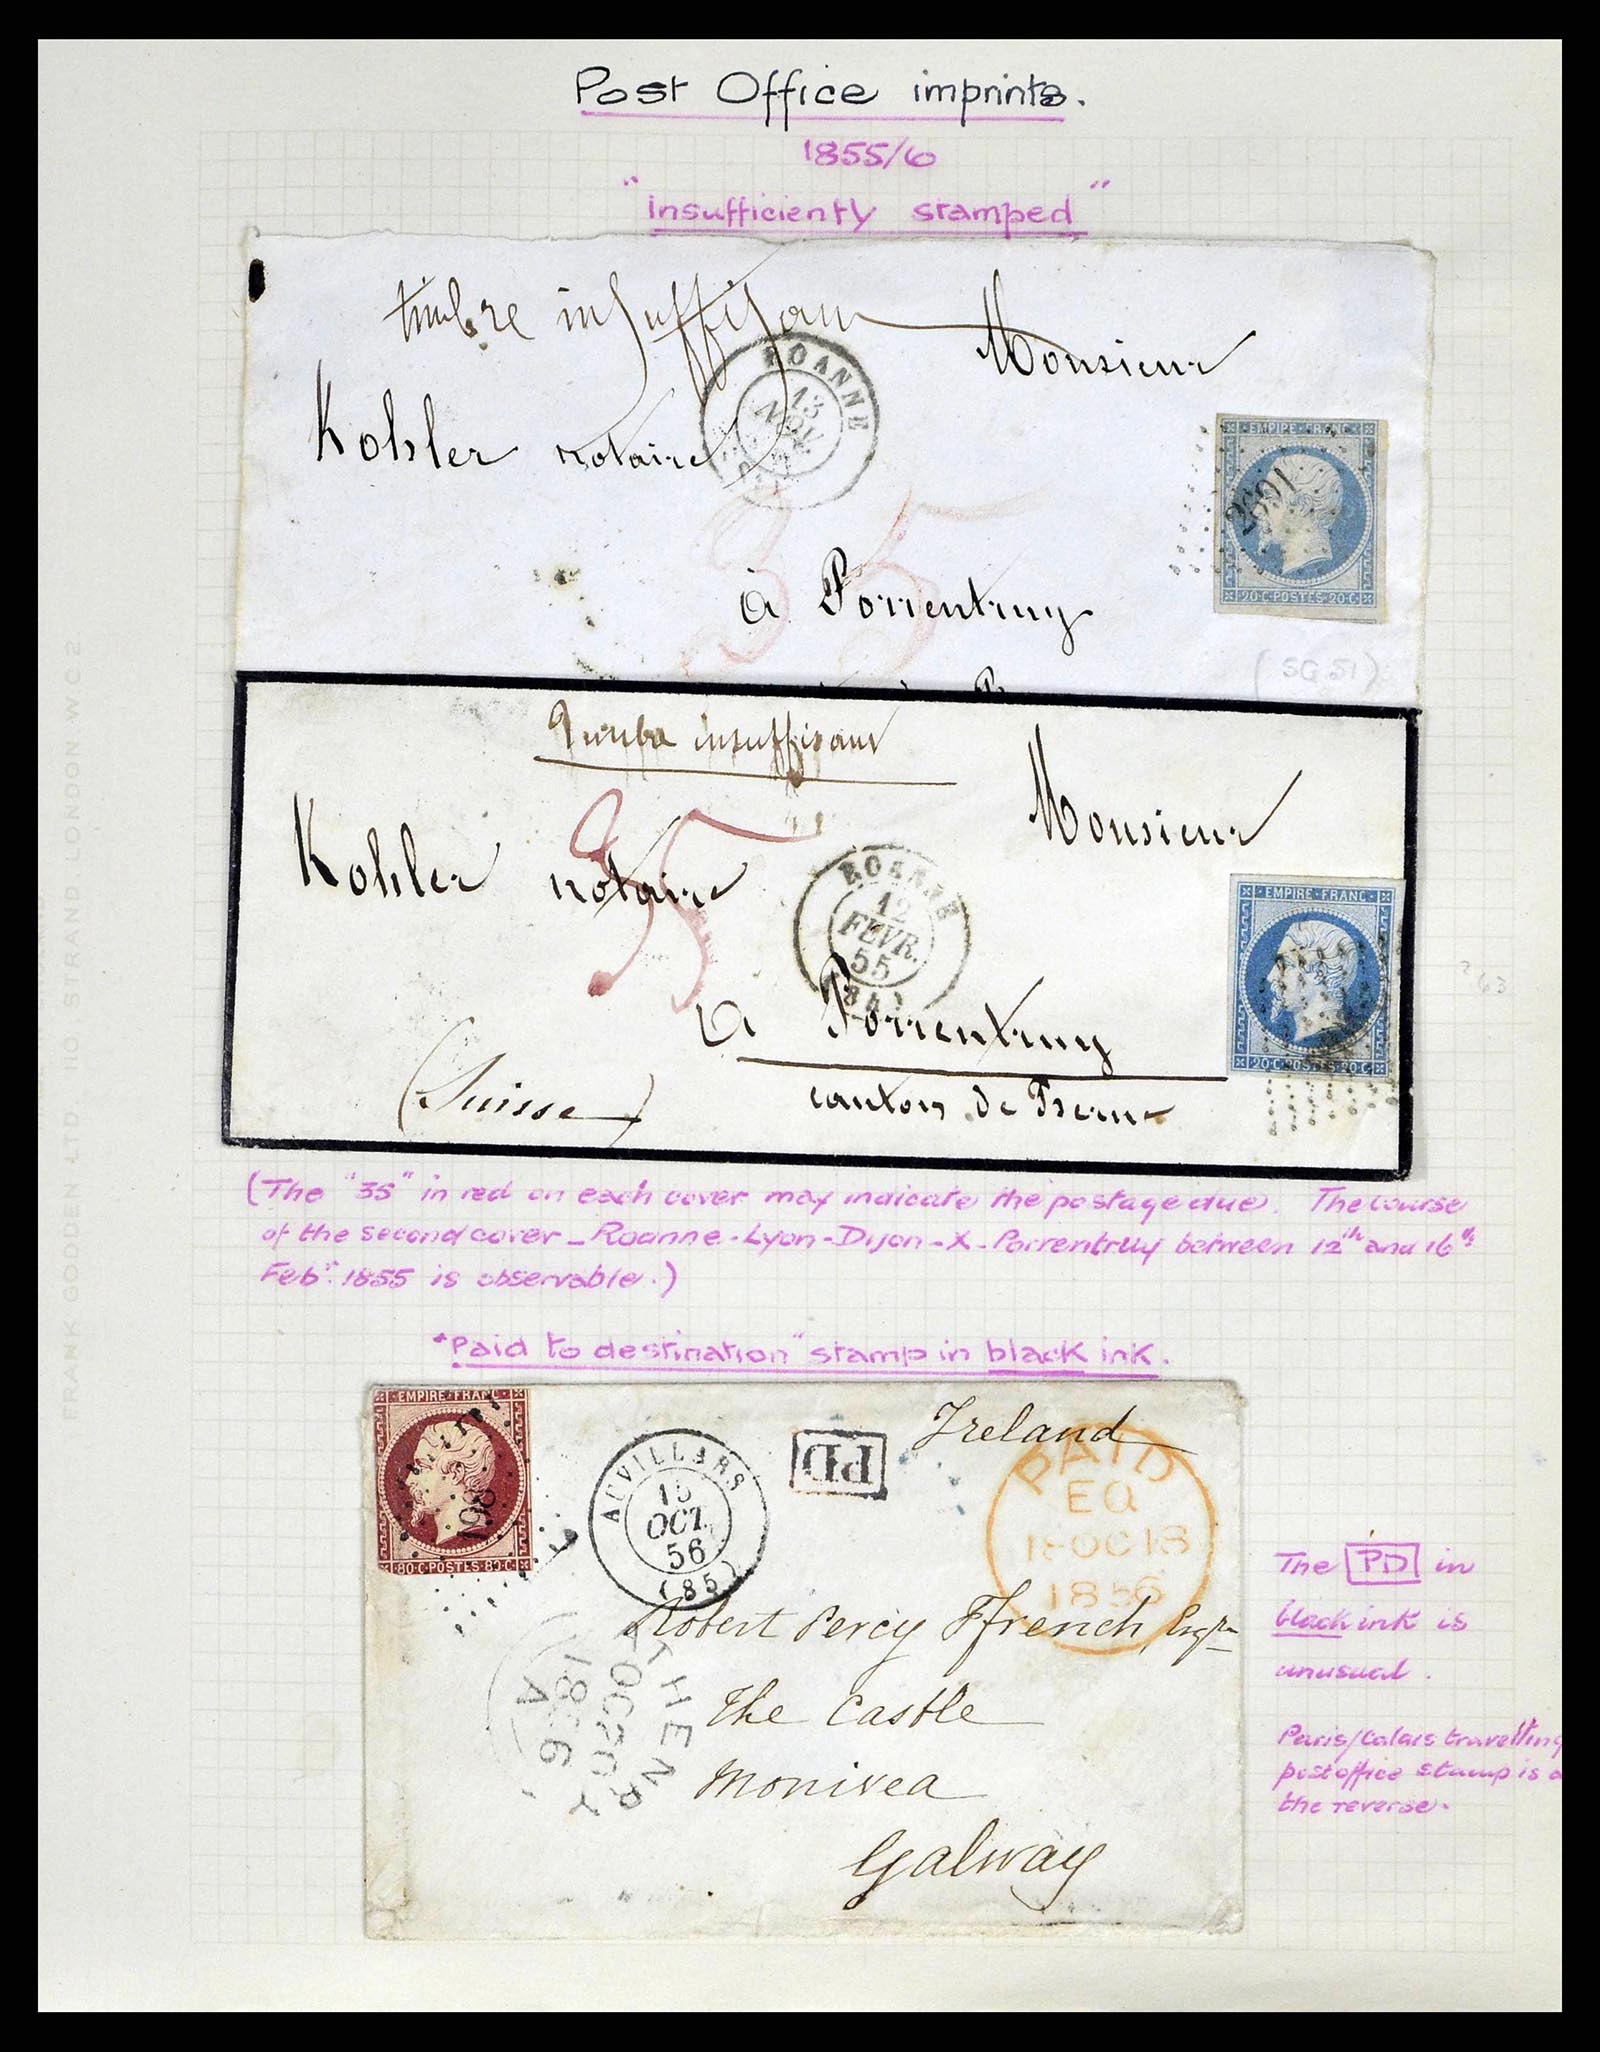 Post Office imprints.
1855/6
"insufficiently stamped"
timbre insuffisant
Monsieur
ROANNE
13
NOV.
Kohler notaire
EMPIRE FRANC
2691
20·C·POSTES·20·C
35
à Porrentruy
(SG.51)
Timbre insuffisant
Monsieur
Kohler notaire
35
ROANNE
12
FEVR.
55
(84)
EMPIRE·FRANC·
20·C·POSTES·20·C
?63
à Porrentruy
(Suisse)
canton de Berne
(The "35" in red on each cover may indicate the postage due. The course
of the second cover – Roanne-Lyon-Dijon-X-Porrentruy between 12th and 16th
Febr. 1855 is observable.)
"Paid to destination" stamp in black ink.
EMPIRE·FRANC
80·C·POSTES·80·C
AUVILLARS
15
OCT.
56
(85)
PD
Ireland
PAID
EQ
18OC18
1856
Robert Percy Ffrench, Esqre
The Castle
Monivea
Galway
ATHENRY
OC20
1856
A
The PD in
black ink is
unusual.
Paris/Calais travelling
post office stamp is o
the reverse.
FRANK GODDEN LTD 110, STRAND LONDON W C 2